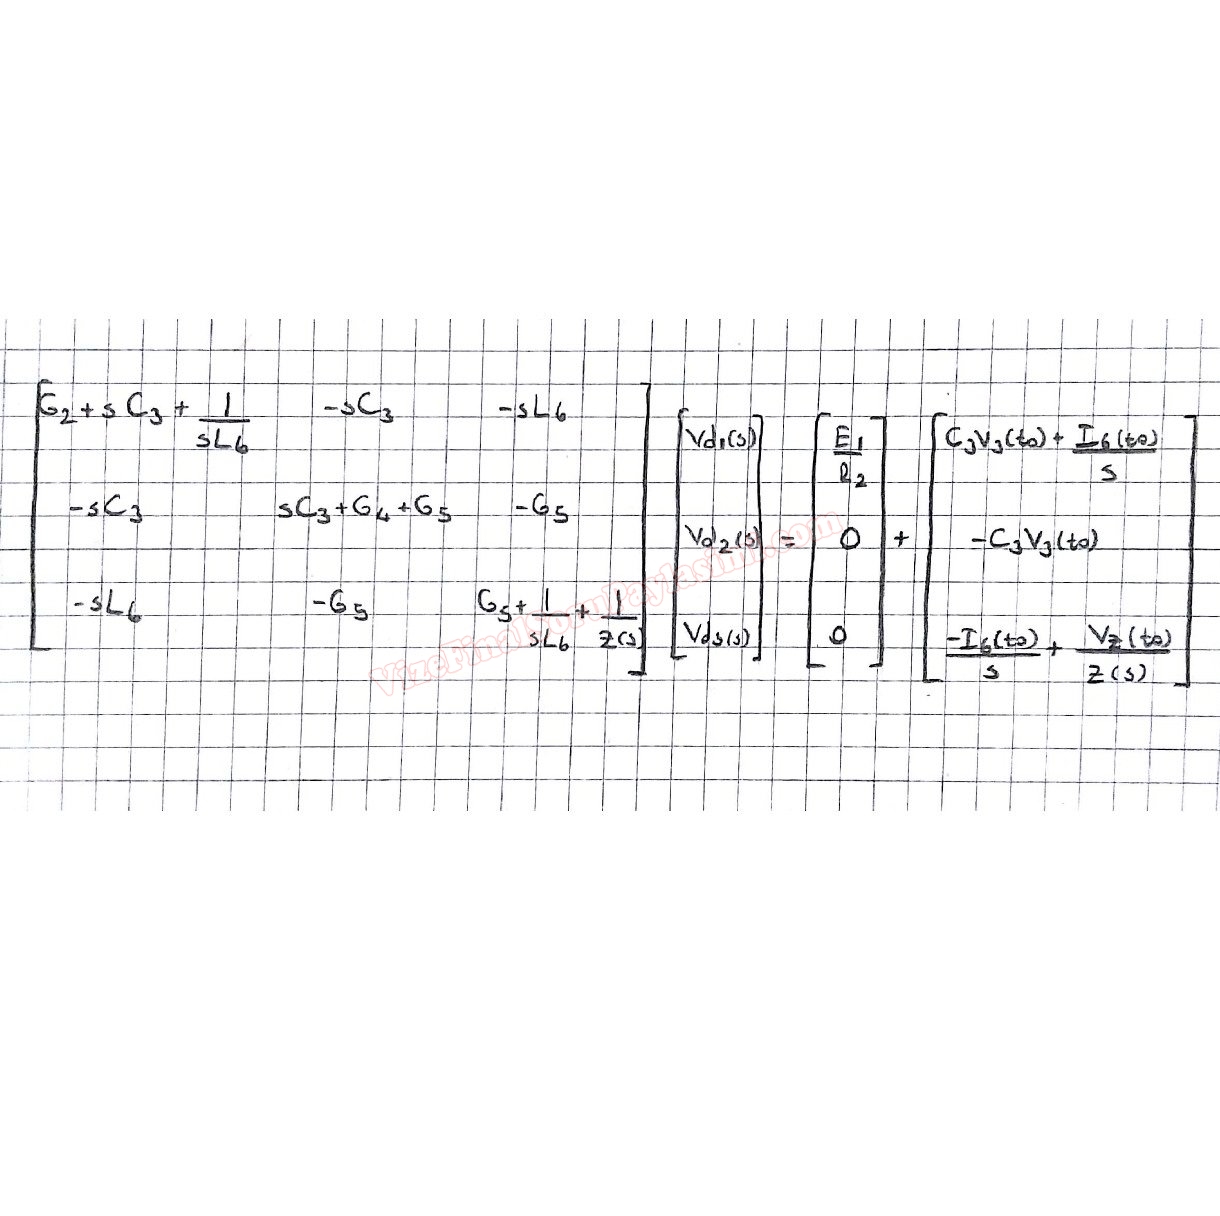 G₂ + sC₃ + 1/sL₆   -sC₃   -sL₆
-sC₃   sC₃ + G₄ + G₅   -G₅
-sL₆   -G₅   G₅ + 1/sL₆ + 1/Z(s)
Vd₁(s)
Vd₂(s)
Vd₃(s)
=
E₁/R₂
0
0
+
C₃V₃(to) + I₆(to)/s
-C₃V₃(to)
-I₆(to)/s + Vz(to)/Z(s)
VizeFinalSoruPaylasimi.com